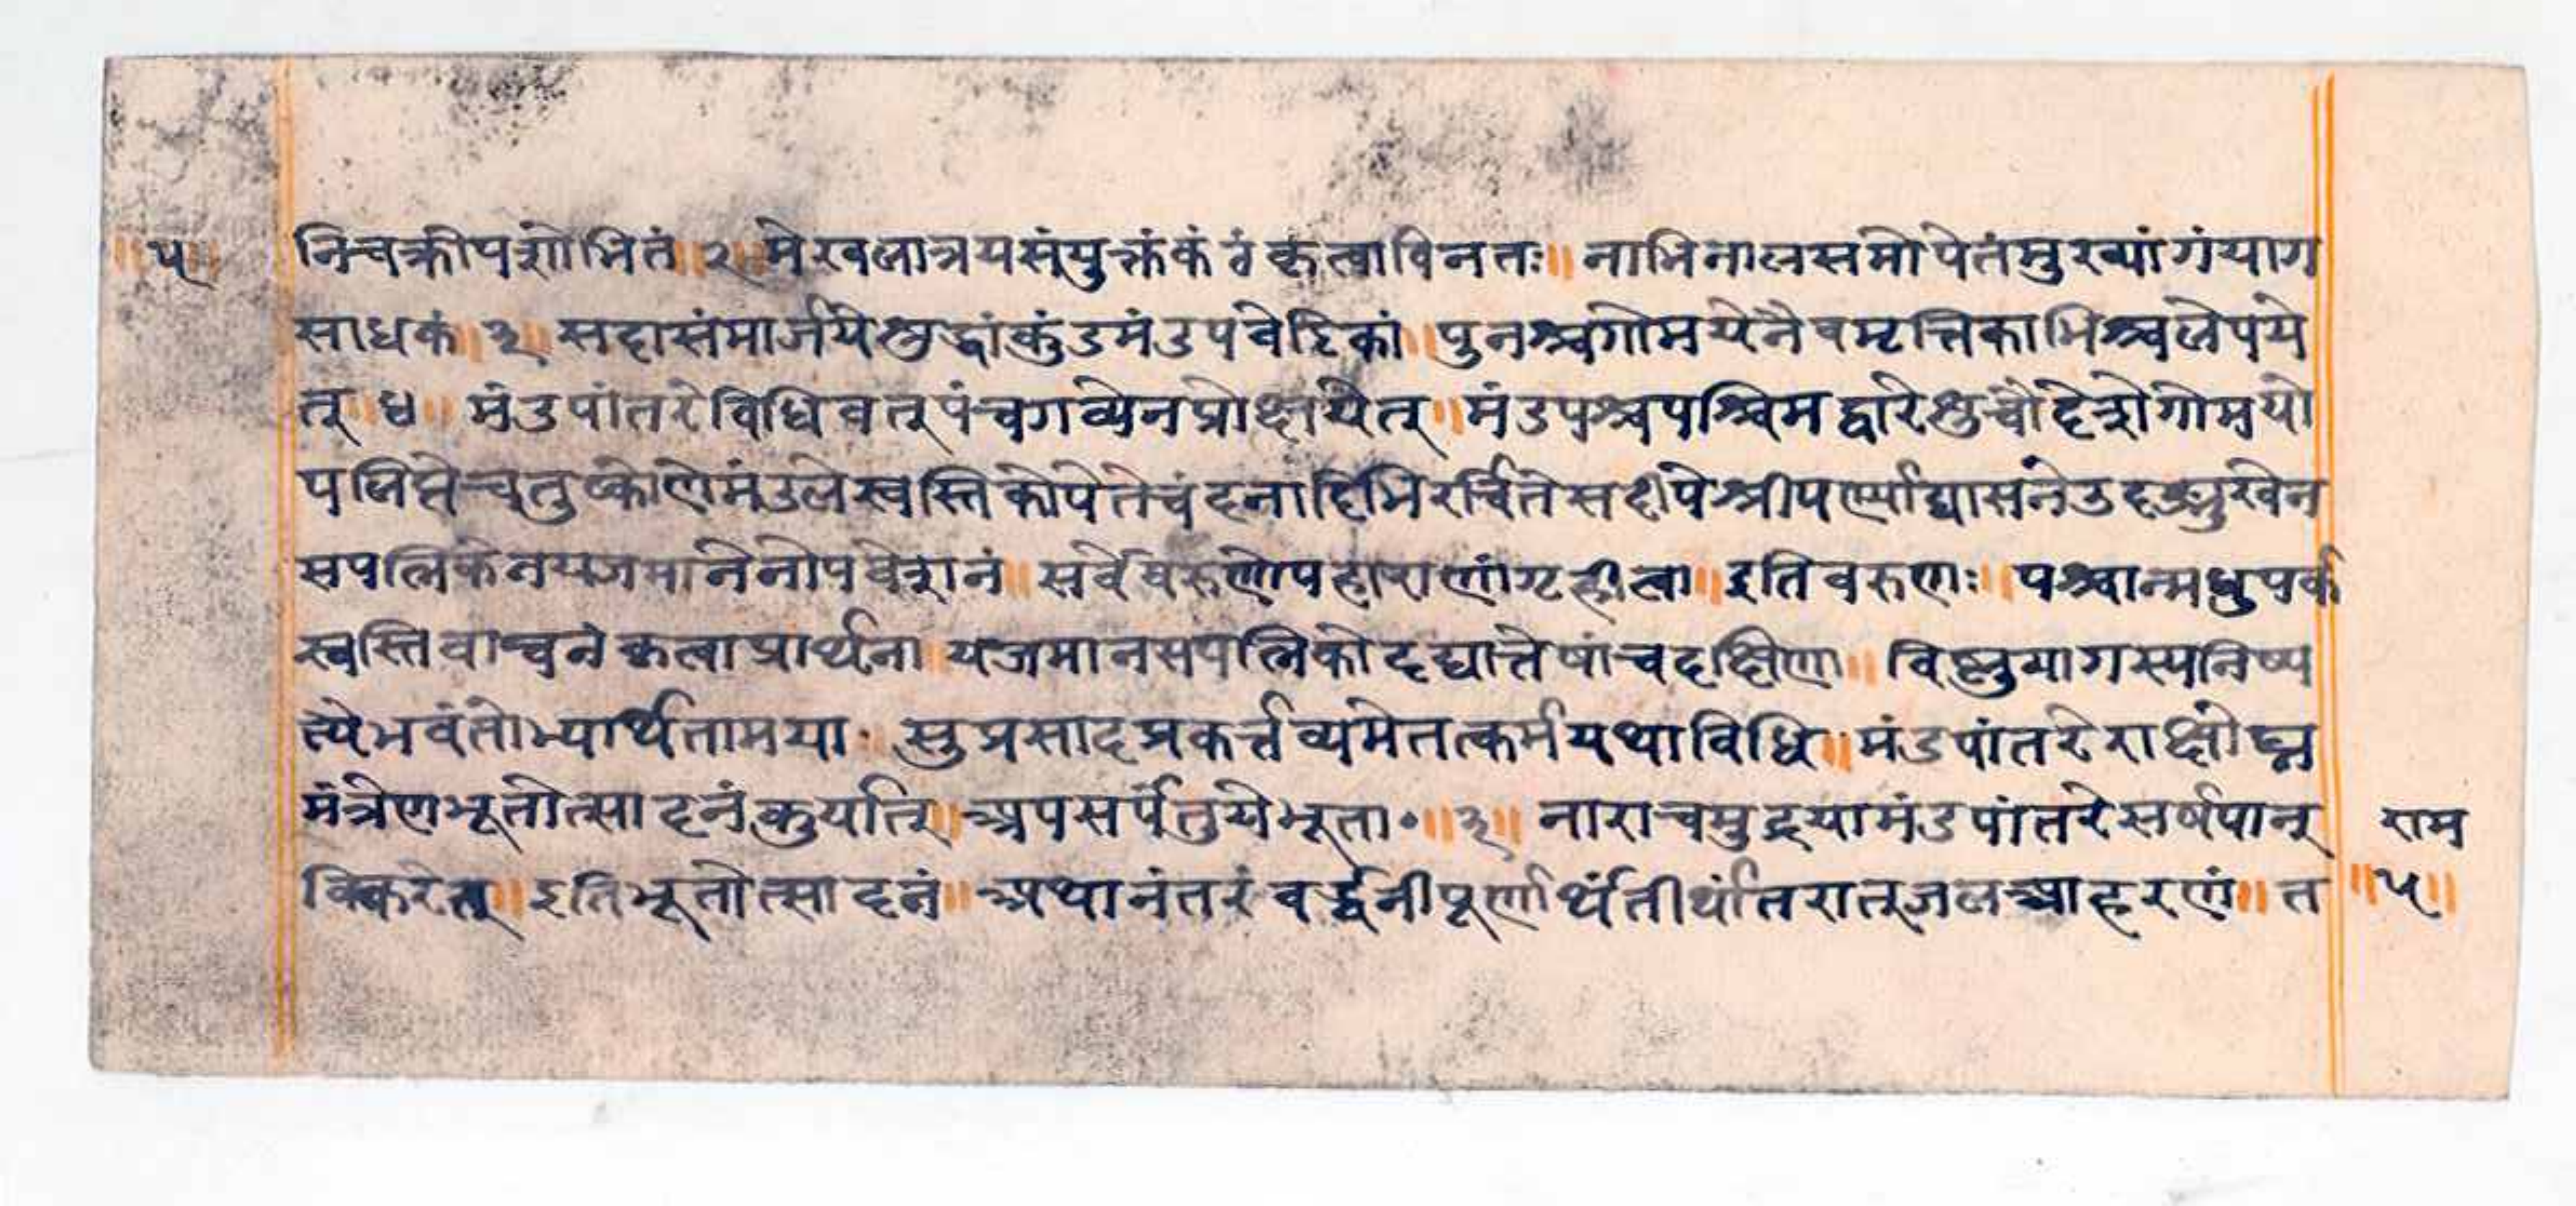 ॥५॥ निचक्रोपशोभितं॥२॥मेखलात्रयसंयुक्तंकंठंकृत्वाविनतः॥नाभिनालसमोपेतंमुख्यांगंयाग
साधकं॥३॥सदासंमार्जयेशुद्धांकुंडमंडपवेदिकां॥पुनश्चगोमयेनैवमृत्तिकाभिश्चलेपये
त्॥४॥मंडपांतरेविधिवत्पंचगव्येनप्रोक्षयेत्॥मंडपश्चपश्चिमद्वारेशुचौदेशेगोमयो
पलिप्तेचतुष्कोणेमंडलेस्वस्तिकोपेतेचंदनादिभिरर्चितेसदीपेश्रीपर्ण्याद्यासनेउदङ्मुखेन
सपत्निकेनयजमानेनोपवेशनं॥सर्वेवरुणोपहाराणांगृहीत्वा॥इतिवरुणः॥पश्चान्मधुपर्क
स्वस्तिवाच्चनंकृत्वाप्रार्थना॥यजमानसपत्निकोदद्यात्तेषांचदक्षिणा॥विष्णुयागस्यनिष्प
त्त्येभवंतोभ्यर्थितामया॰॥सुप्रसादप्रकर्त्तव्यमेतत्कर्मयथाविधि॥मंडपांतरेराक्षोघ्न
मंत्रेणभूतोत्सादनंकुर्यात्॥अपसर्पंतुयेभूता॰॥३॥नाराचमुद्रयामंडपांतरेसर्षपान् राम
विकरेत्॥इतिभूतोत्सादनं॥अथानंतरंवर्द्धनीपूर्णार्थंतीर्थांतरात्जलआहरणं॥त ॥५॥